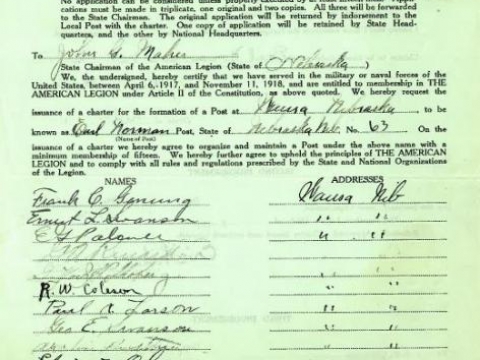 No application can be considered unless properly executed by at least fifteen men. Appli-
cations must be made in triplicate, one original and two copies. All three will be forwarded
to the State Chairman. The original application will be returned by indorsement to the
Local Post with the charter. One copy of application will be retained by State Head-
quarters, and the other by National Headquarters.
To John G. Maher
State Chairman of the American Legion (State of Nebraska )
We, the undersigned, hereby certify that we have served in the military or naval forces of the
United States, between April 6, 1917, and November 11, 1918, and are entitled to membership in THE
AMERICAN LEGION under Article II of the Constitution, as above quoted. We hereby request the
issuance of a charter for the formation of a Post at Wausa Nebraska, to be
known as Earl Norman Post, State of Nebraska Neb. No. 63 On the
(Name of Post)
issuance of a charter we hereby agree to organize and maintain a Post under the above name with a
minimum membership of fifteen. We hereby further agree to uphold the principles of THE AMERICAN
LEGION and to comply with all rules and regulations prescribed by the State and National Organizations
of the Legion.
NAMES ADDRESSES
Frank C. Wausa Neb
Ernest L. Swanson " "
E " "
R. W. Coleson " "
Paul A. Larson " "
Geo E. Swanson " "
" "